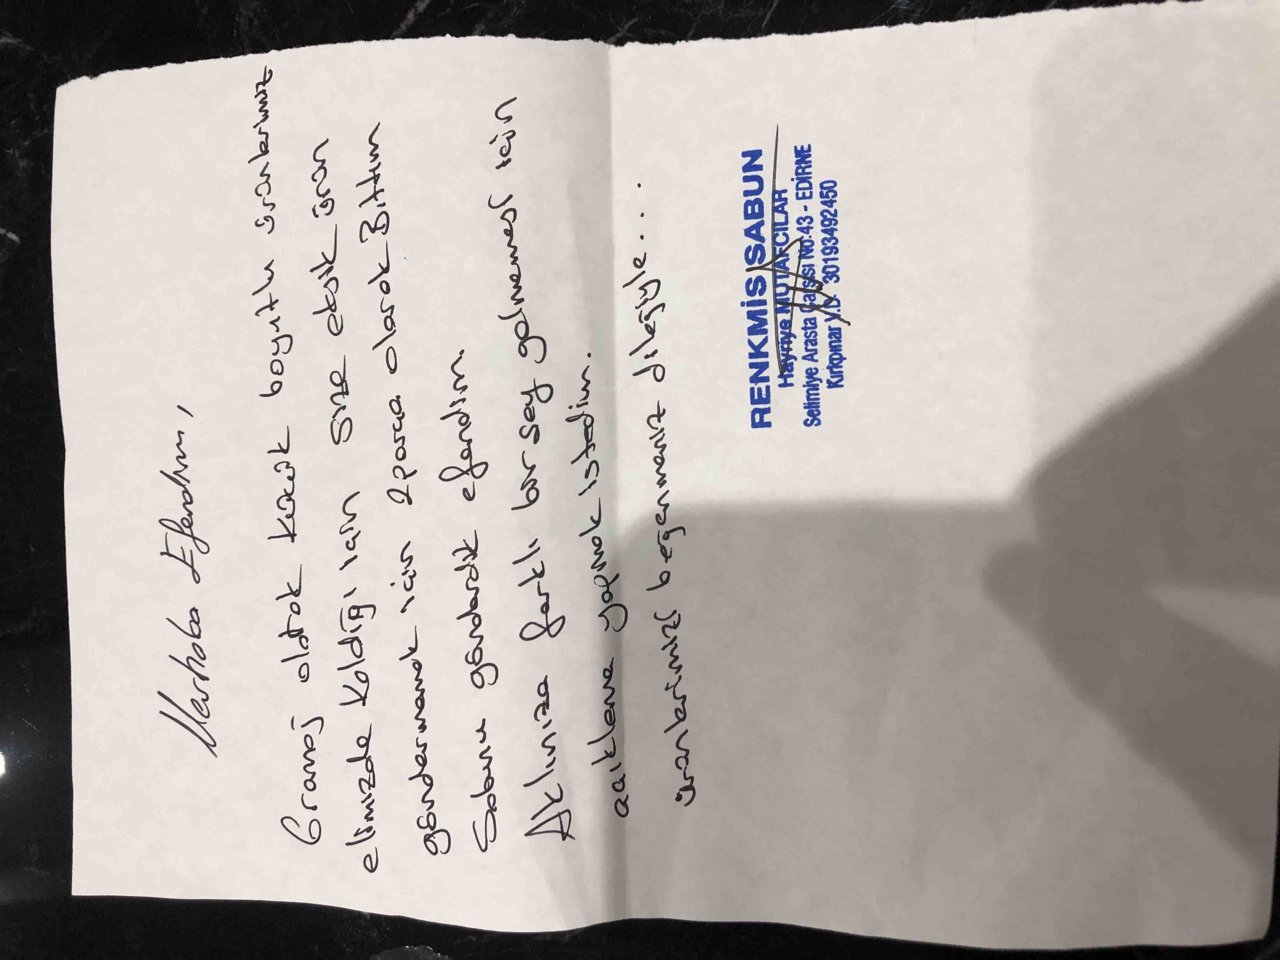 Merhaba Efendim,
Gramaj olarak küçük boyutlu ürünlerimiz
elimizde kaldığı için size eksik ürün
göndermemek için 2 parça olarak Bıttım
Sabunu gönderdik efendim.
Aklınıza farklı bir şey gelmemesi için
açıklama yapmak istedim.
ürünlerimizi beğenmeniz dileğiyle...
RENKMİS SABUN
Hayriye MUTAFCILAR
Selimiye Arasta Çarşısı No:43 - EDİRNE
Kırkpınar V.D. 30193492450